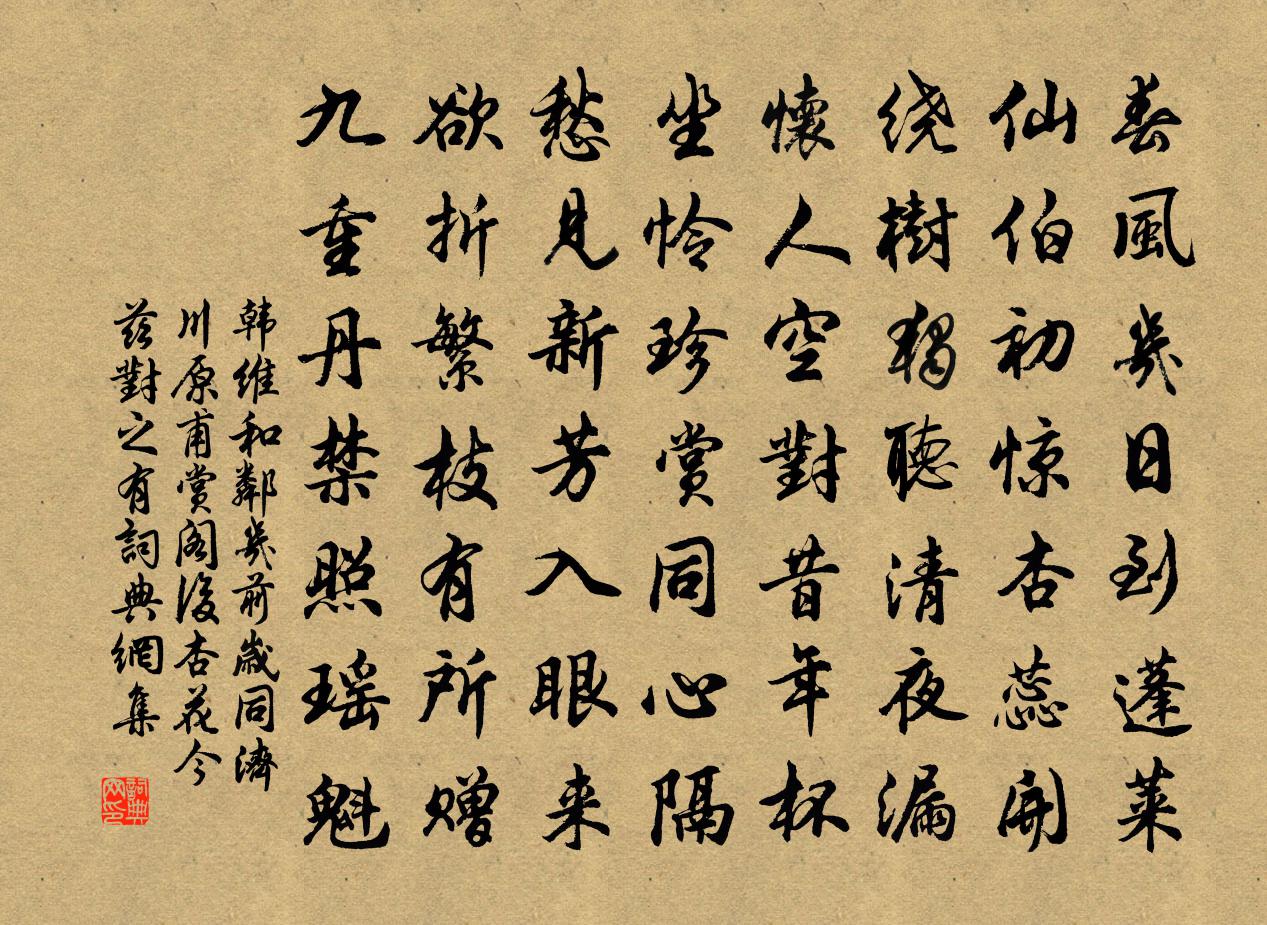 春風幾日到蓬萊
仙伯初惊杏蕊開
绕樹獨聽清夜漏
懷人空對昔年杯
坐怜珍賞同心隔
愁見新芳入眼来
欲折繁枝有所赠
九重丹禁照瑶魁
韩维和鄰幾前歲同濟
川原甫賞阁後杏花今
兹對之有詞典網集
詞典
网印